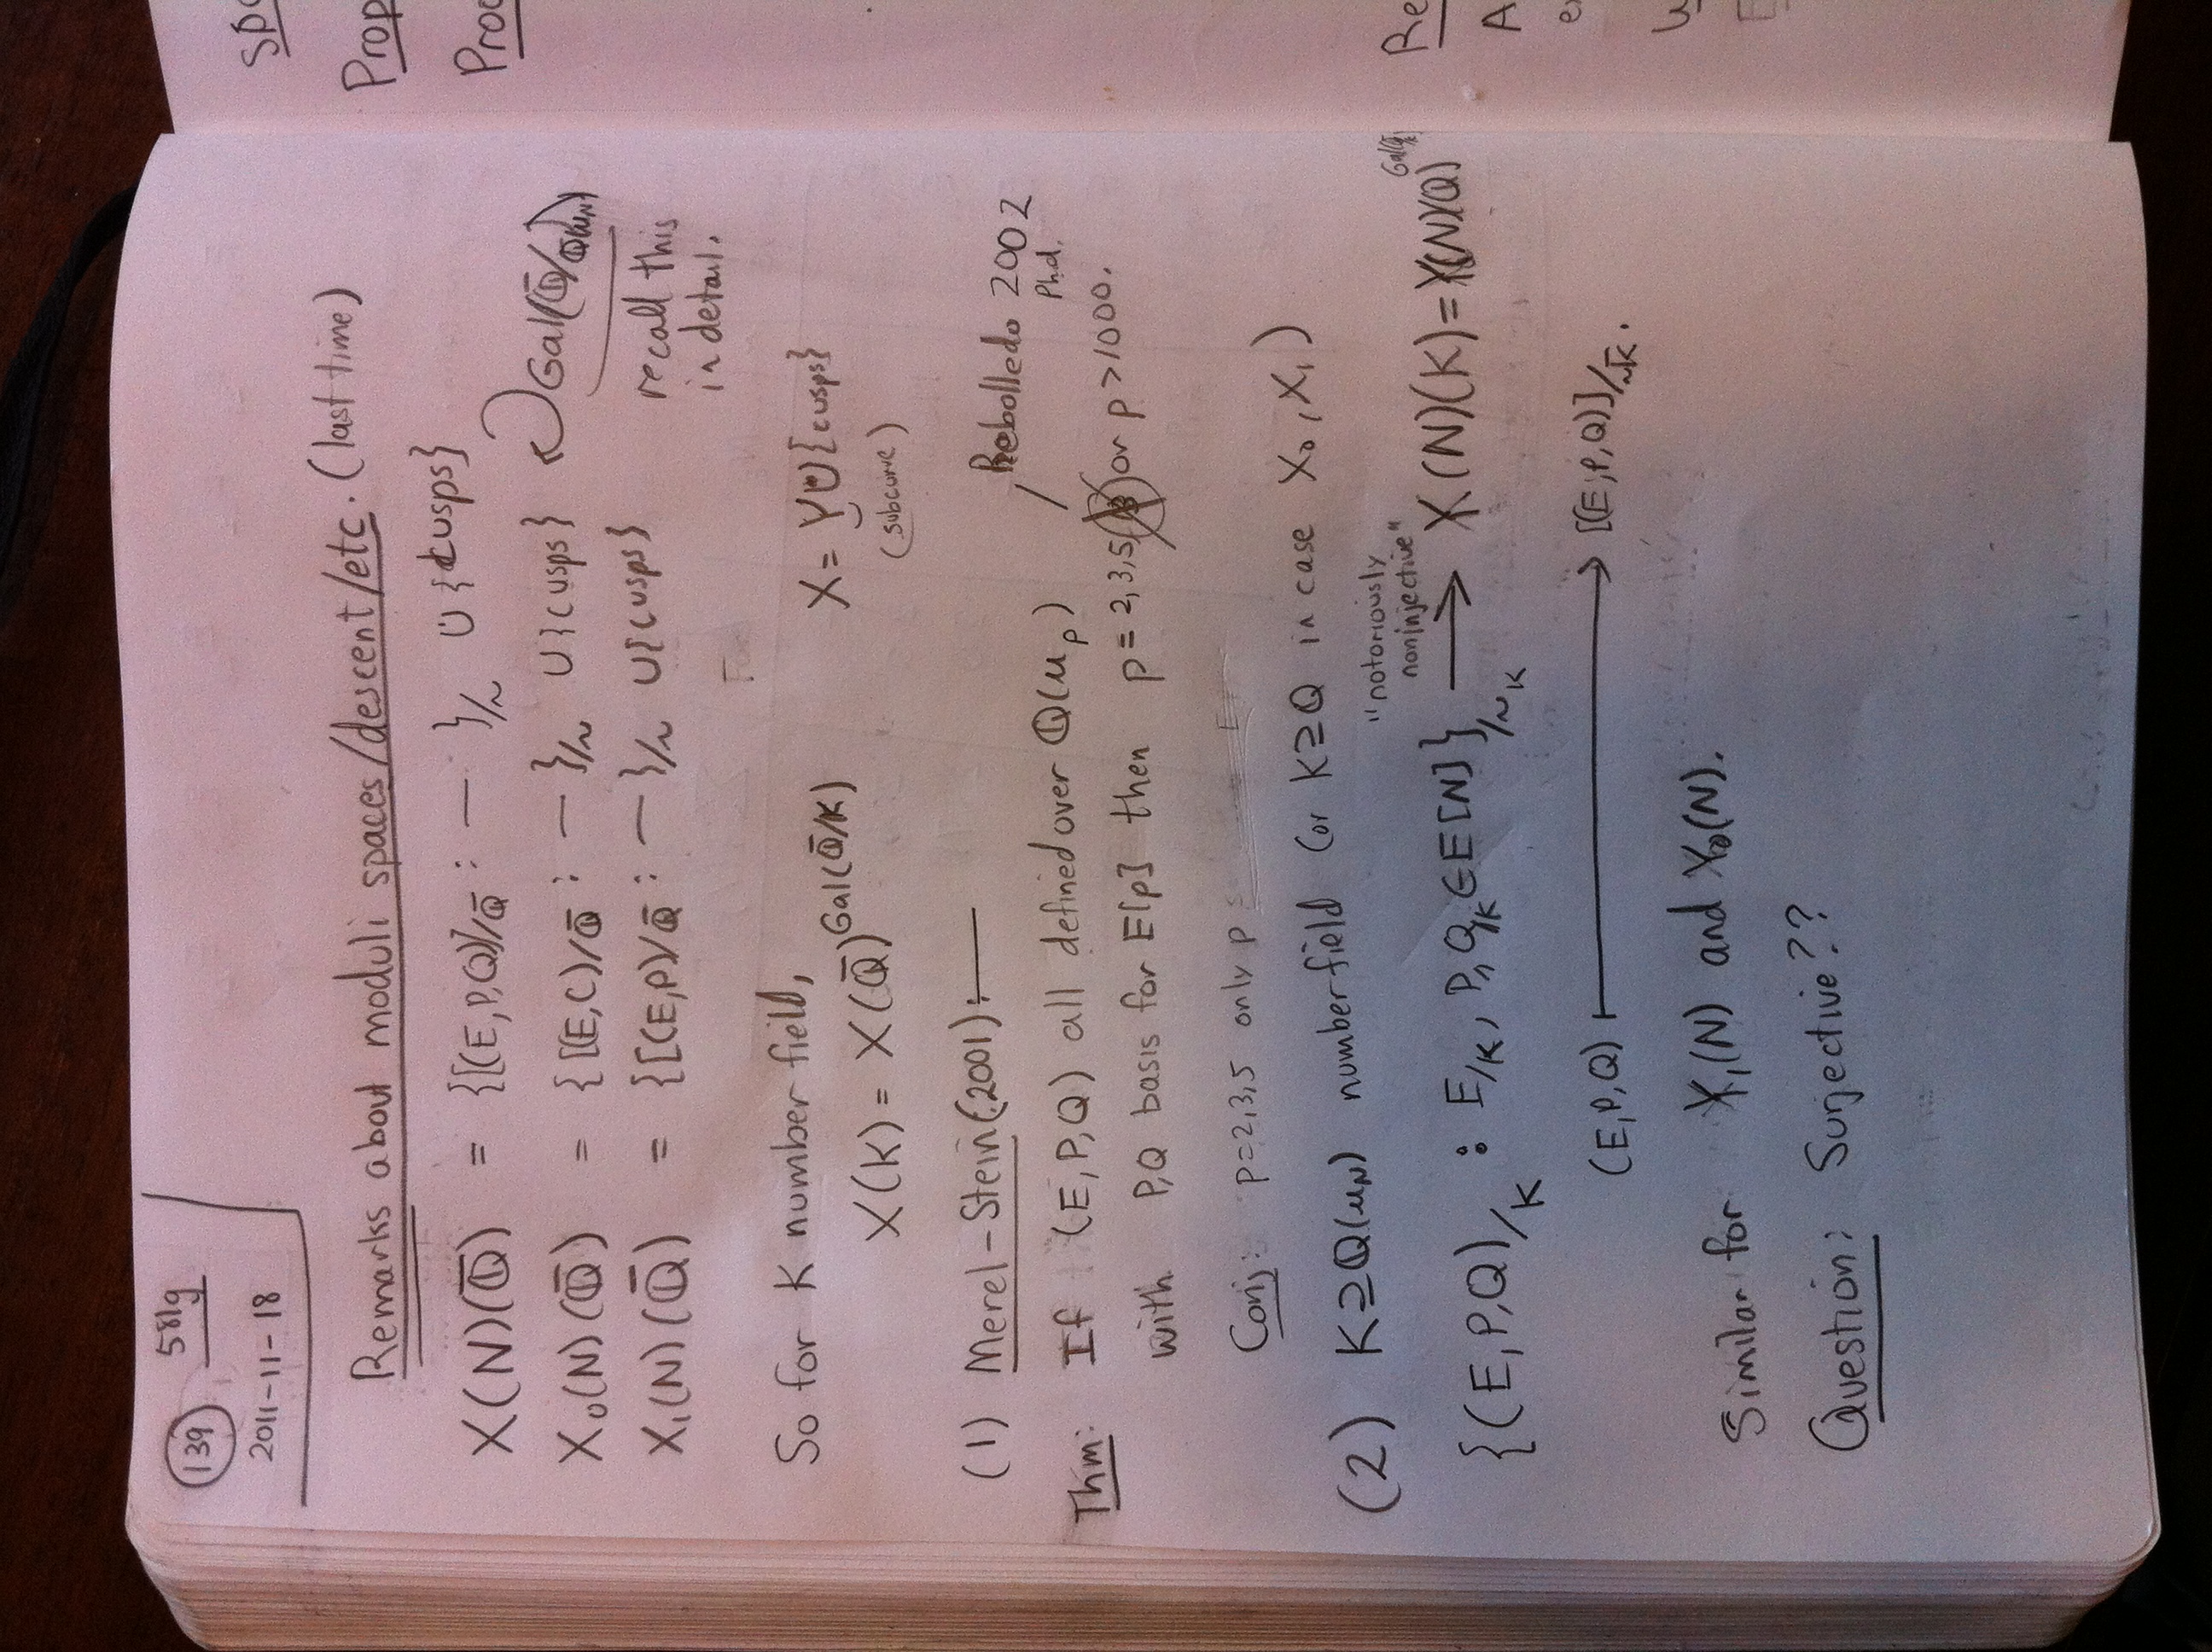 139 581g
2011-11-18
Remarks about moduli spaces/descent/etc. (last time)
X(N)(Q̄) = {[(E,P,Q)]/Q̄ : — }/~ ∪ {cusps}
X₀(N)(Q̄) = {[(E,C)/Q̄ : — }/~ ∪ {cusps} Gal(Q̄/Q(μN))
X₁(N)(Q̄) = {[(E,P)/Q̄ : — }/~ ∪ {cusps} recall this
in detail.
So for K number field, X = Y ∪ {cusps}
X(K) = X(Q̄)^Gal(Q̄/K) (subcurve)
(1) Merel-Stein (2001): — / Rebolledo 2002
Ph.d.
Thm: If (E,P,Q) all defined over Q(μp)
with P,Q basis for E[p] then p=2,3,5 or p>1000.
Conj: p=2,3,5 only p
(2) K⊇Q(μN) number field (or K⊇Q in case X₀, X₁)
"notoriously
noninjective"
{(E,P,Q)/K : E/K, P,Q/K ∈ E[N]}/~K → X(N)(K) = X(N)(Q̄)^Gal
(E,P,Q) ↦ [(E,P,Q)]/~K̄.
Similar for X₁(N) and X₀(N).
Question: Surjective??
Spa
Prop
Proo
Re
A
e